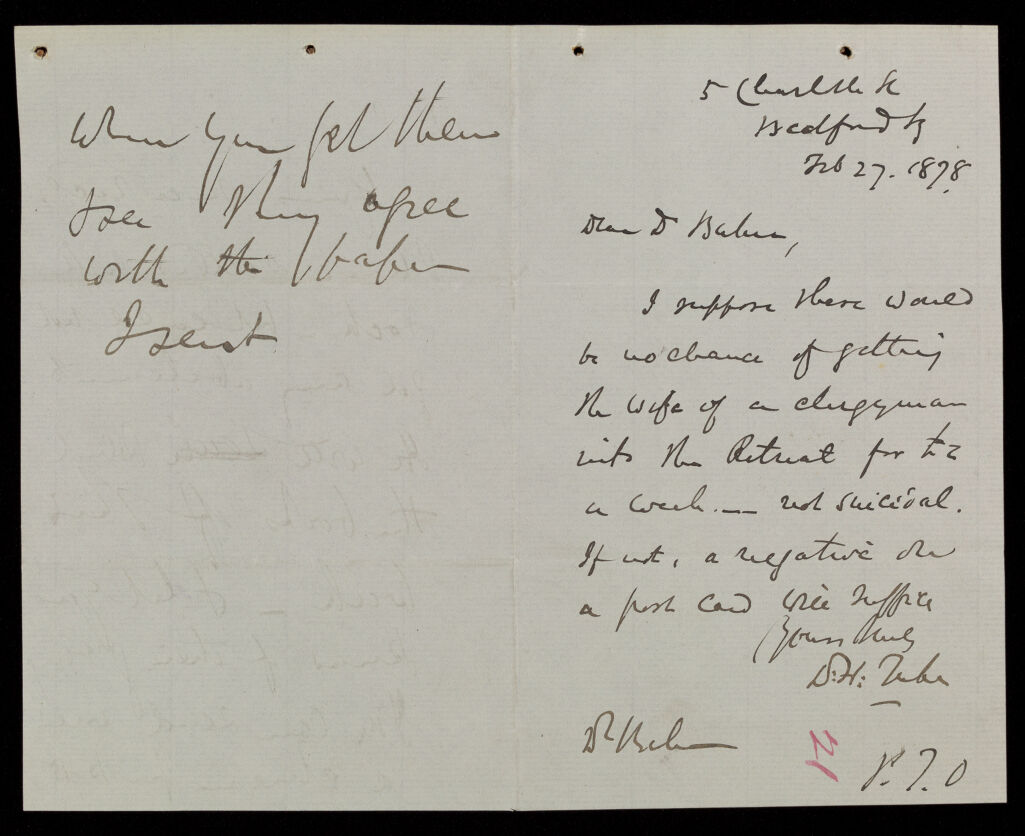 5 Charlotte St
Bedford Sq
Feb 27. 1878.
Dear Dr Baker,
I suppose there would
be no chance of getting
the wife of a clergyman
into the Retreat for £2
a week. — not suicidal.
If not, a negative on
a post card will suffice
Yours truly
D. H. Tuke
Dr Baker
21
P. T. O
When you get them
see they agree
with the paper
I sent